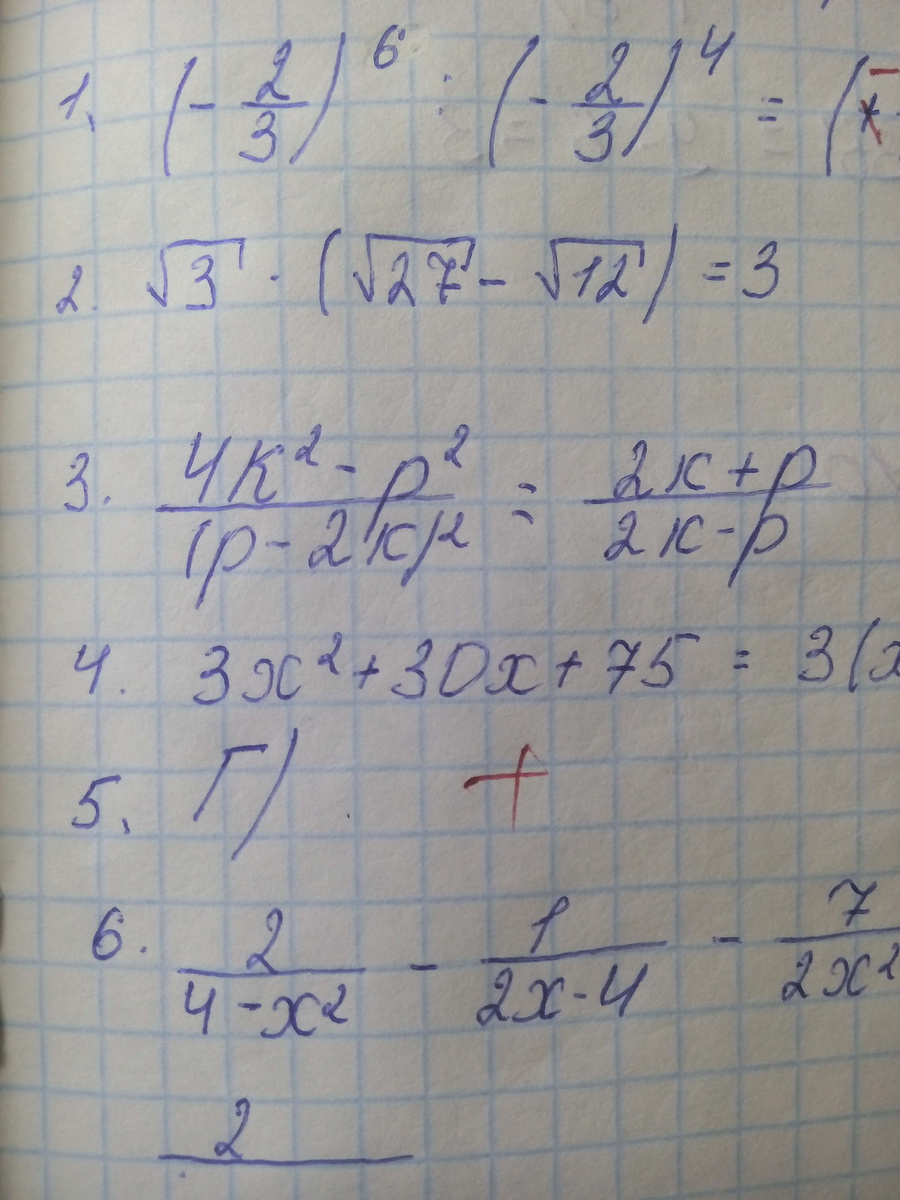 1. (-2/3)^6 : (-2/3)^4 = (-
2. √3 · (√27 - √12) = 3
3. (4к² - р²)/(р - 2к)² = (2к + р)/(2к - р)
4. 3x² + 30x + 75 = 3(x
5. Г) +
6. 2/(4 - x²) - 1/(2x - 4) - 7/(2x²
2